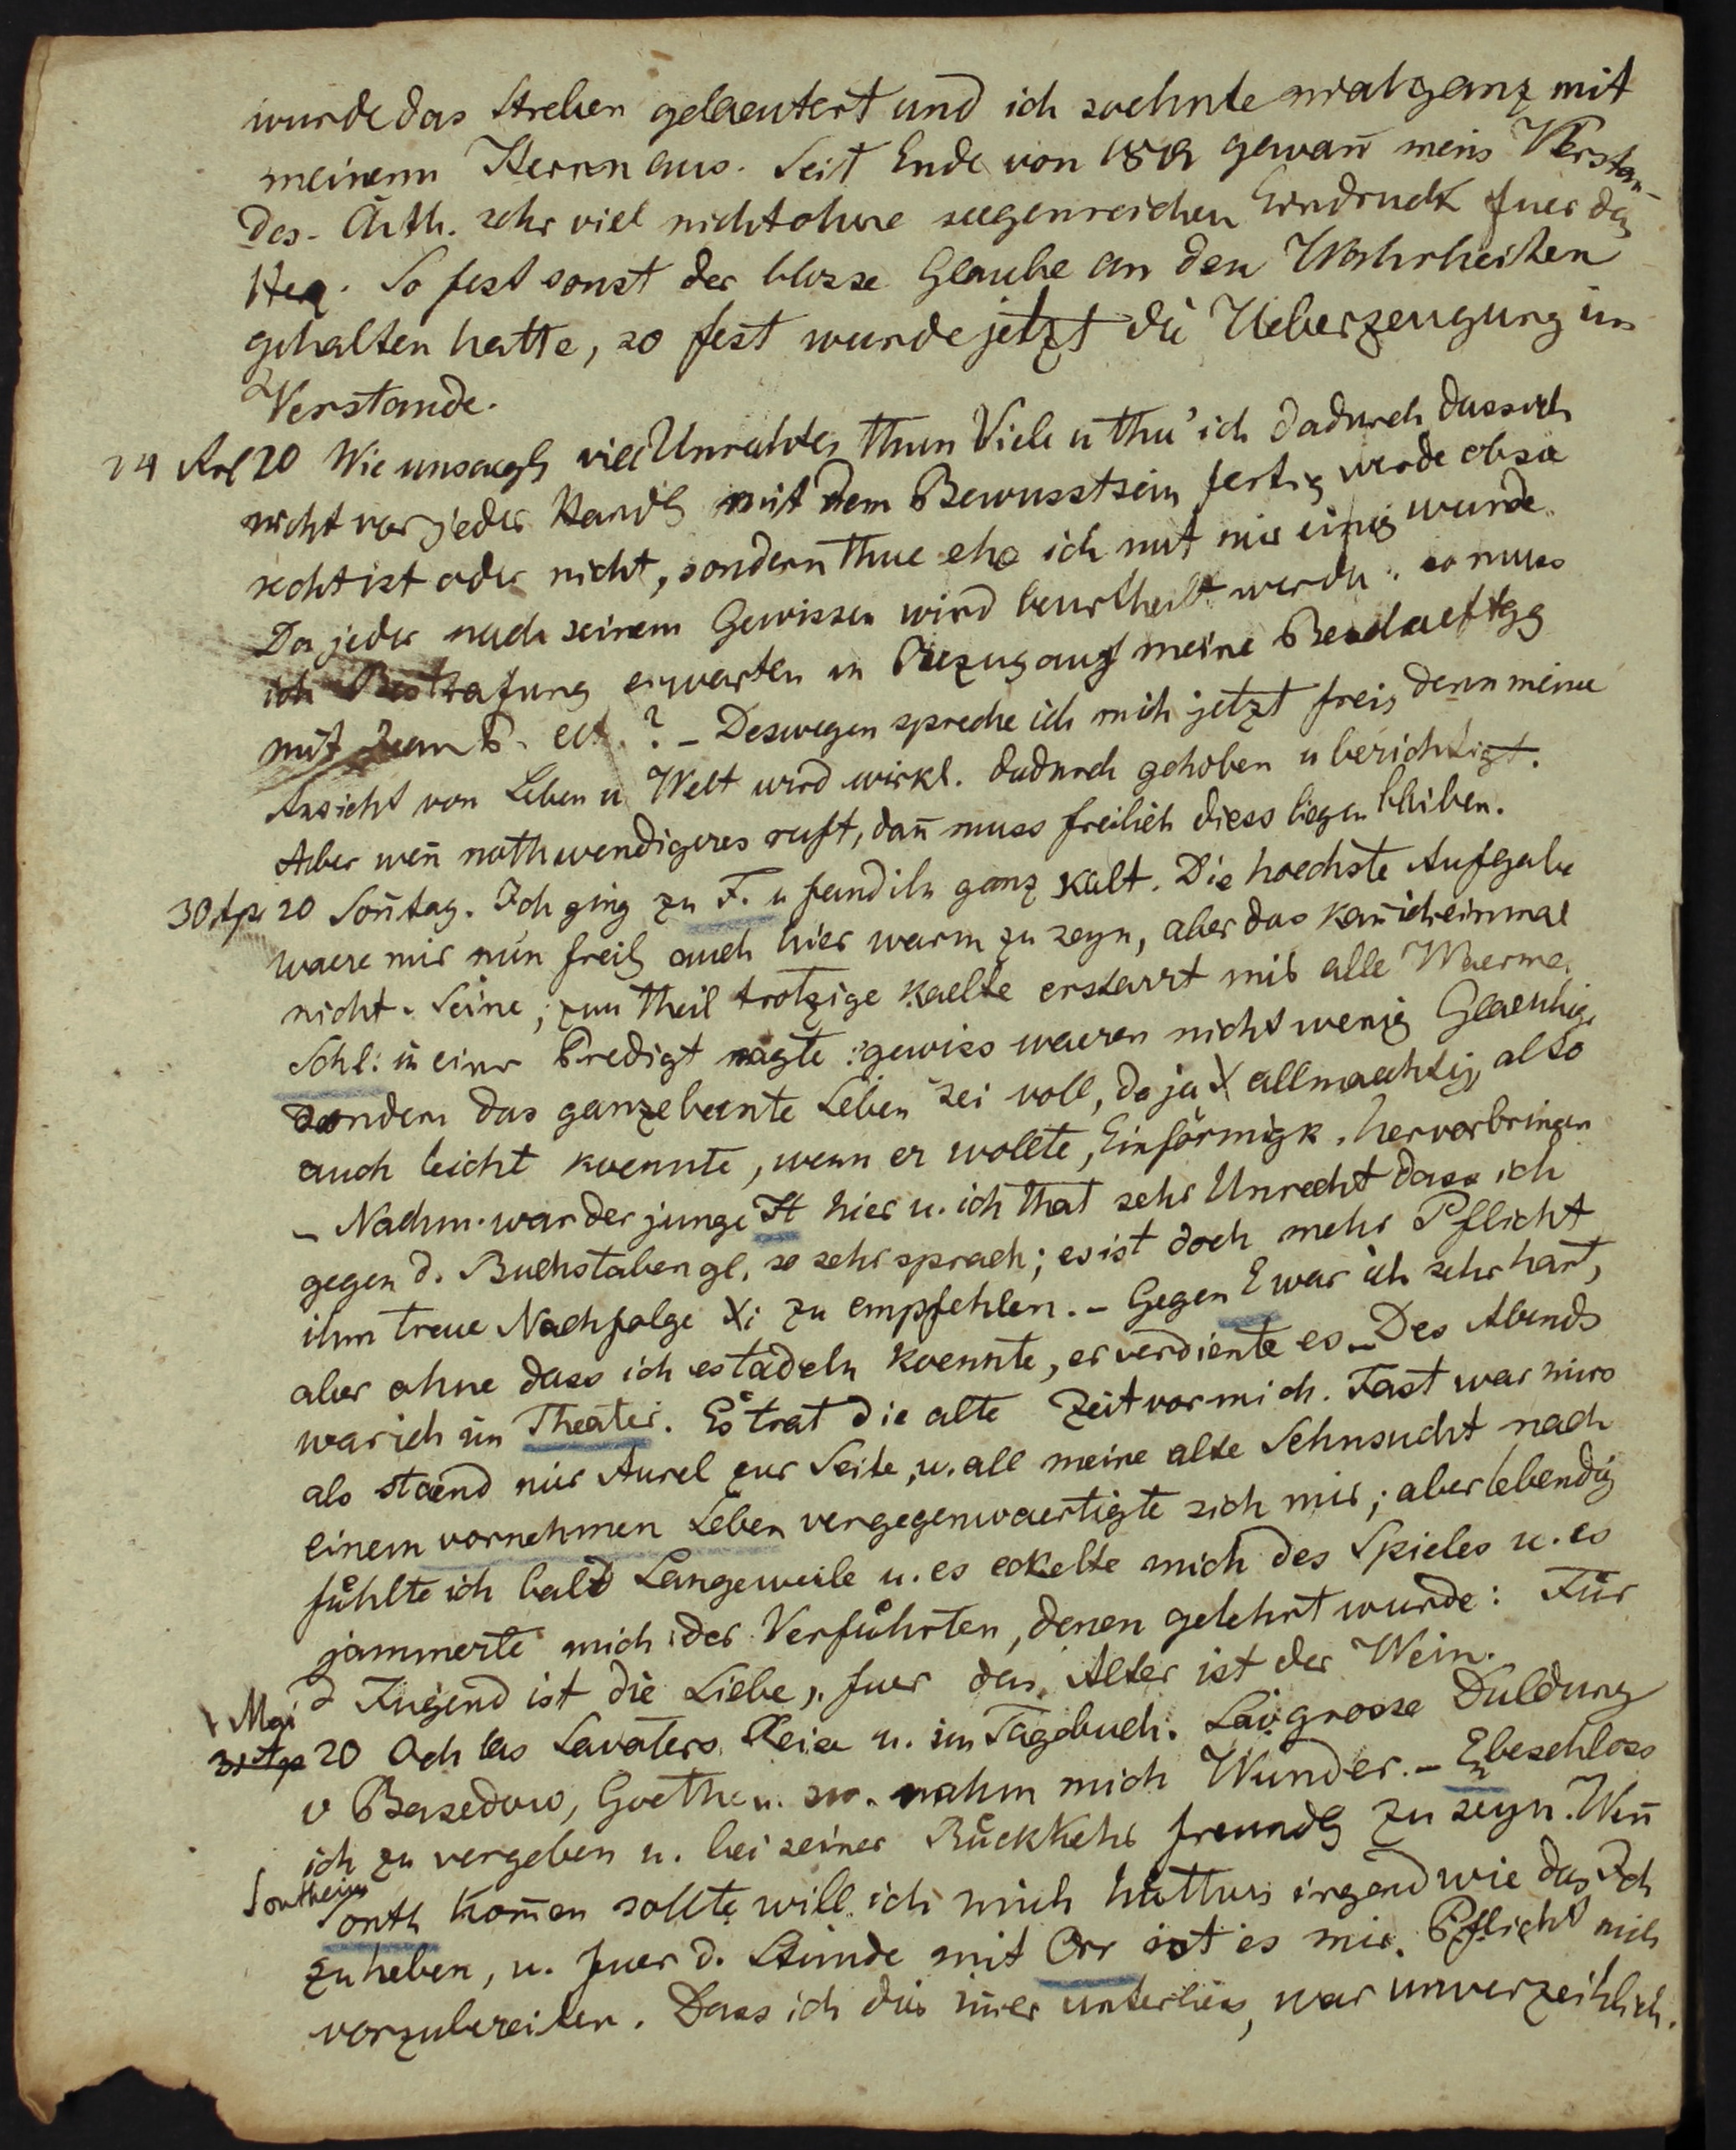 wurde das Streben gelaeutert und ich soehnte mich ganz mit
meinem Herrn aus. Seit Ende von 1819 gewan̄ meins Verstan-
des- Chth. sehr viel nicht ohne seegenreichen Eindruck fuer das
Herz. So fest sonst der blosse Glaube an den Wahrheiten
gehalten hatte, so fest wurde jetzt die Ueberzeugung im
Verstande.
24 Arl 20 Wie unsaegl viel Unrechtes thun Viele u thu' ich dadurch dass ich
nicht vor jeder Handlg mit dem Bewusstsein fertig werde ob sie
recht ist oder nicht, sondern thue ehe ich mit mir einig wurde.
Da jeder nach seinem Gewissen wird beurtheilt werden, so muss
ich Bestrafung erwarten in Bezug auf meine Beschaeftgg
mit Jean P. ect. ? – Deswegen spreche ich mich jetzt frei, denn meine
Ansicht von Leben u Welt wird wirkl. dadurch gehoben u berichtigt.
Aber wen̄ nothwendigeres ruft, dan̄ muss freilich diess liegen bleiben.
30 Apr 20 Son̄tag. Ich ging zu F. u fand ihn ganz kalt. Die hoechste Aufgabe
waere mir nun freil auch hier warm zu seyn, aber das kan̄ ich einmal
nicht. Seine, zum theil trotzige Kaelte erstarrt mir alle Waerme.
Schl: in einer Predigt sagte: gewiss waeren nicht wenig Glaeubige
sondern das ganze bunte Leben sei voll, da ja X allmaechtig, also
auch leicht koennte, wenn er wollte, Einförmigk. hervorbringen
– Nachm. war der junge St hier u. ich that sehr Unrecht dass ich
gegen d. Buchstabengl. so sehr sprach; es ist doch mehr Pflicht
ihm treue Nachfolge Xi zu empfehlen. – Gegen E war ich sehr hart,
aber ohne dass ich es tadeln koennte, er verdiente es. – Des Abends
war ich im Theater. Es trat die alte Zeit vor mich. Fast war mirs
als staend mir Aurel zur Seite, u. all meine alte Sehnsucht nach
einem vornehmen Leben vergegenwaertigte sich mir; aber lebendig
fühlte ich bald Langeweile u. es eckelte mich des Spieles u. es
jammerte mich der Verführten, denen gelehrt wurde: Für
d Jugend ist die Liebe, fuer das Alter ist der Wein.
1 Mai
31 Apr 20 Ich las Lavaters Reise u. im Tagebuch. Lav grosse Duldung
v Basedow, Goethe u. sw. nahm mich Wunder. – E beschloss
ich zu vergeben u. bei seiner Rückkehr freundl zu seyn. Wen̄
Sontheim
Sonth kom̄en sollte will ich mich hüten irgend wie das Ich
zu heben, u. fuer d. Stunde mit Orr ist es mir Pflicht mich
vorzubereiten. Dass ich dies im̄er unterliess, war unverzeihlich.